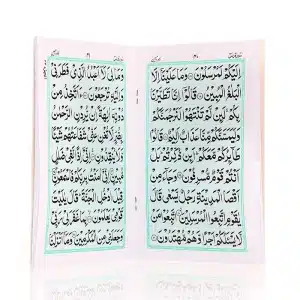 اِلَيْكُمْ لَمُرْسَلُوْنَ ۝ وَمَا عَلَيْنَاۤ اِلَّا
الْبَلٰغُ الْمُبِيْنُ ۝ قَالُوْۤا اِنَّا تَطَيَّرْنَا
بِكُمْ لَئِنْ لَّمْ تَنْتَهُوْا لَنَرْجُمَنَّكُمْ
وَلَيَمَسَّنَّكُمْ مِّنَّا عَذَابٌ اَلِيْمٌ ۝ قَالُوْا
طَآئِرُكُمْ مَّعَكُمْ اَئِنْ ذُكِّرْتُمْ بَلْ
اَنْتُمْ قَوْمٌ مُّسْرِفُوْنَ ۝ وَجَآءَ مِنْ
اَقْصَا الْمَدِيْنَةِ رَجُلٌ يَّسْعٰى قَالَ
يٰقَوْمِ اتَّبِعُوا الْمُرْسَلِيْنَ ۝ اتَّبِعُوْا مَنْ
لَّا يَسْئَلُكُمْ اَجْرًا وَّهُمْ مُّهْتَدُوْنَ ۝
وَمَا لِىَ لَاۤ اَعْبُدُ الَّذِىْ فَطَرَنِىْ
وَاِلَيْهِ تُرْجَعُوْنَ ۝ ءَاَتَّخِذُ مِنْ
دُوْنِهٖۤ اٰلِهَةً اِنْ يُّرِدْنِ الرَّحْمٰنُ
بِضُرٍّ لَّا تُغْنِ عَنِّىْ شَفَاعَتُهُمْ شَيْئًا
وَّلَا يُنْقِذُوْنِ ۝ اِنِّىْۤ اِذًا لَّفِىْ ضَلٰلٍ
مُّبِيْنٍ ۝ اِنِّىْۤ اٰمَنْتُ بِرَبِّكُمْ فَاسْمَعُوْنِ ۝
قِيْلَ ادْخُلِ الْجَنَّةَ قَالَ يٰلَيْتَ
قَوْمِىْ يَعْلَمُوْنَ ۝ بِمَا غَفَرَ لِىْ رَبِّىْ
وَجَعَلَنِىْ مِنَ الْمُكْرَمِيْنَ ۝ وَمَاۤ اَنْزَلْنَا